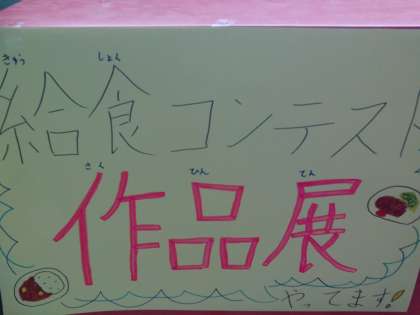 きゅう しょく
給食コンテスト
さく ひん てん
作品展
やってます!